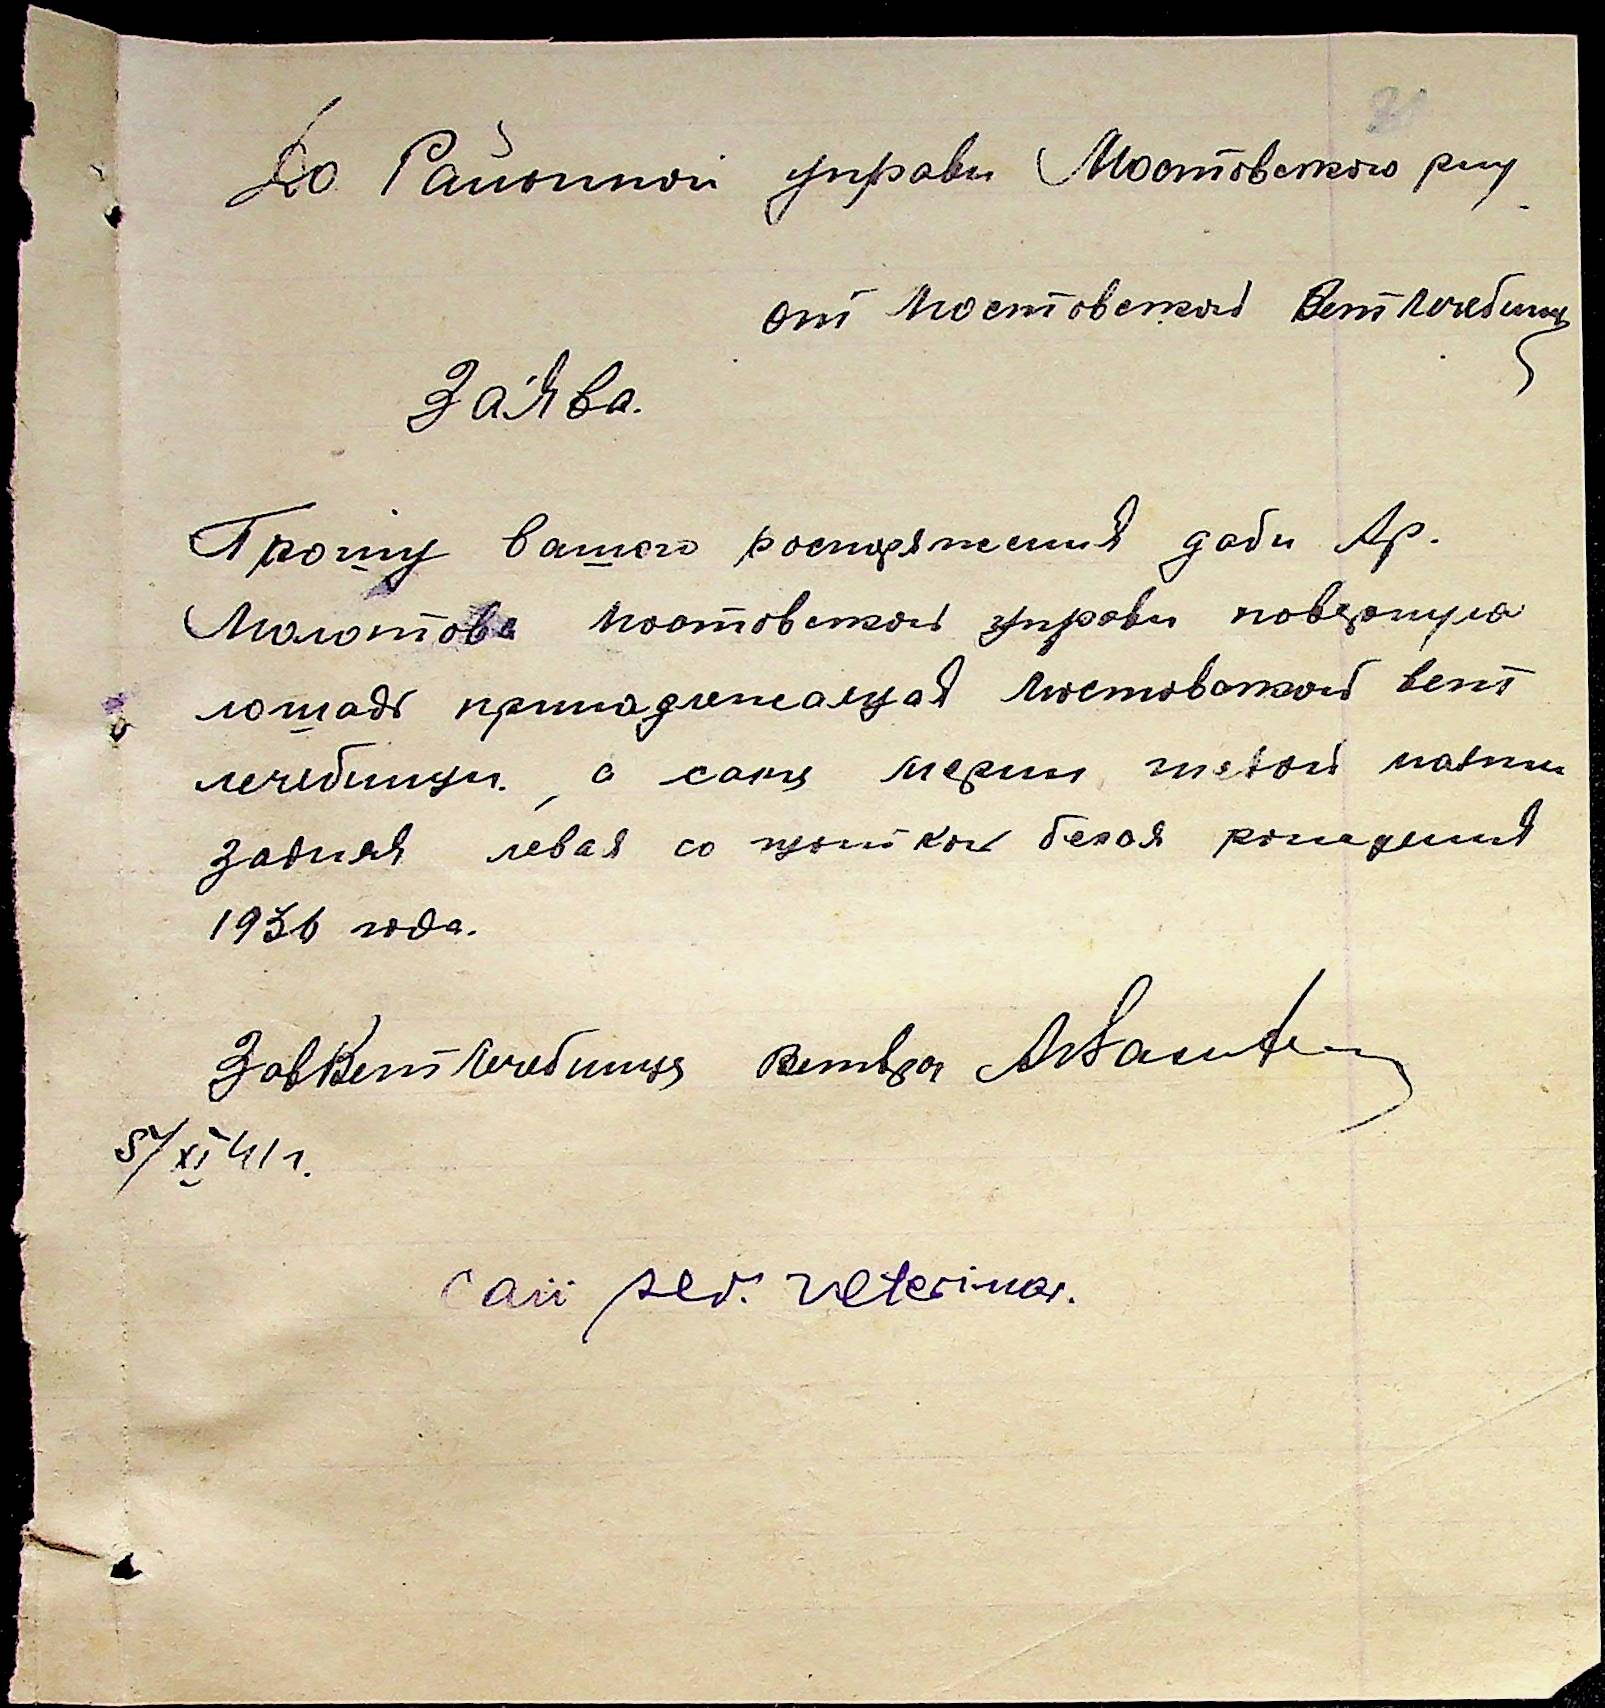 До Районной управи Мостовского р-ну
от Мостовской ВетЛечебници
Заява.
Прошу вашого роспоряжения даби Ар.
Молотова Мостовской управи повернула
лошадь принадлежащая Мостовской вет
лечебници, а саме мерин гнедой
задняя левая со щоткой белая рождения
1936 года.
ЗавВетЛечебници Ветврач
5/XI 41 г.
Caii veterinar.